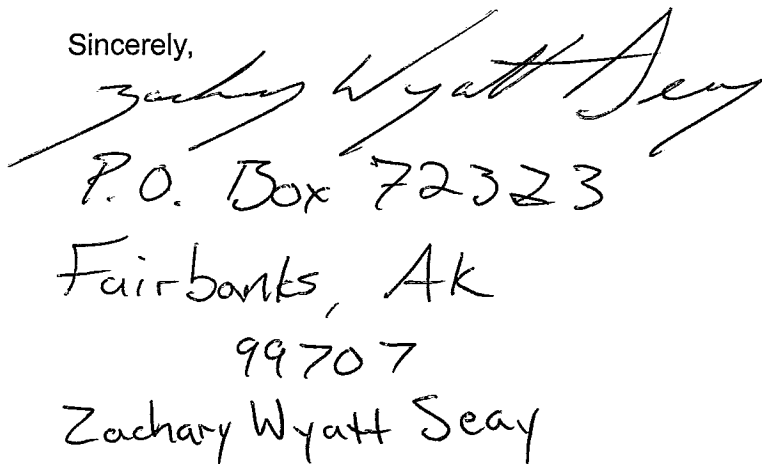 Sincerely,
Zachary Wyatt Seay
P.O. Box 72323
Fairbanks, Ak
99707
Zachary Wyatt Seay